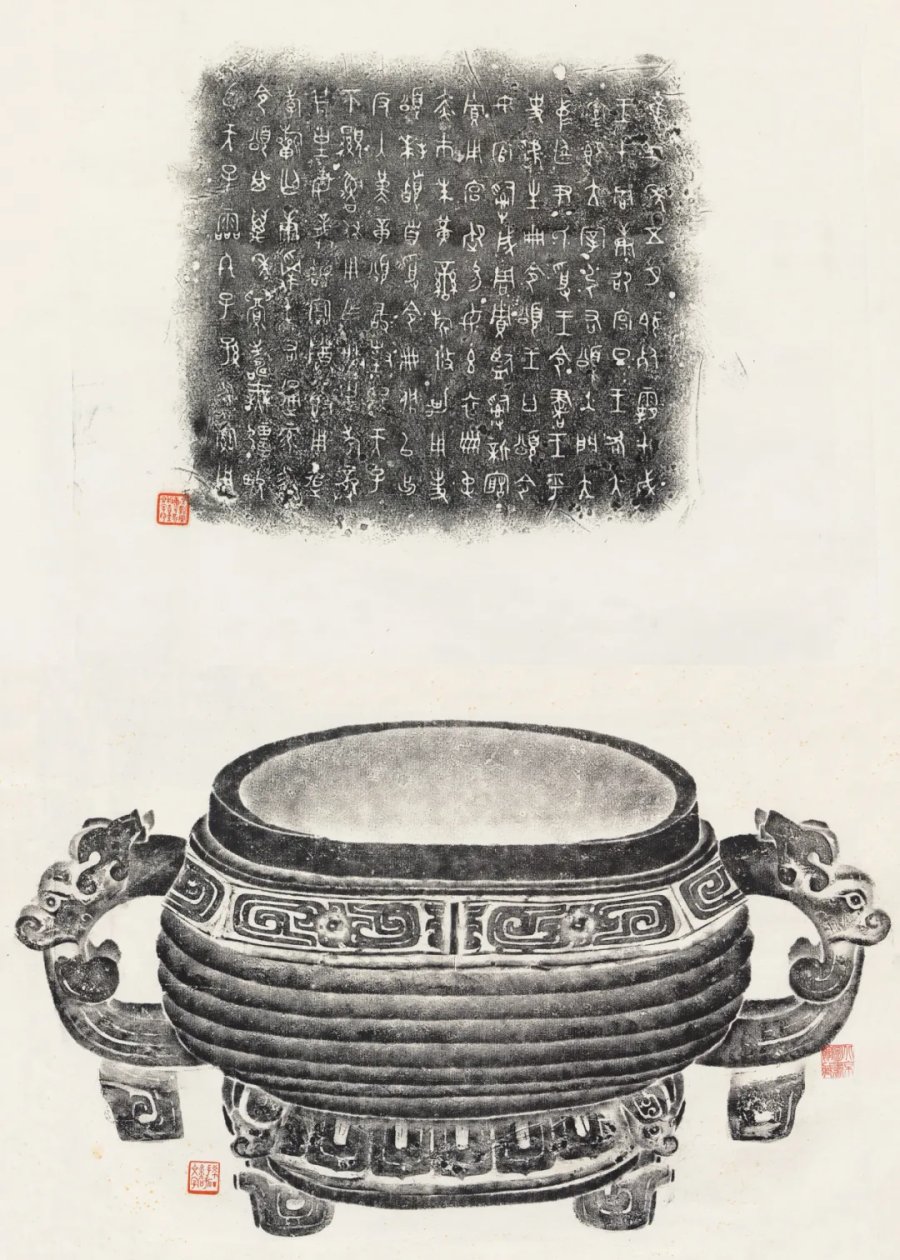 隹三年五月既死霸甲戌
王才周康卲宮旦王各大
室即立宰引右頌入門立
中廷尹氏受王令書王乎
史虢生冊令頌王曰頌令
女官𤔲成周賈監𤔲新造
賈用宮御易女玄衣黹屯
赤巿朱黃䜌旂攸勒用事
頌拜𩒨首受令冊佩以出
反入堇章頌敢對揚天子
不顯魯休用乍朕皇考龏
弔皇母龏始寶尊簋用追
孝𧻚匄康𩔉屯右通彔永
令頌其萬年眉壽無疆畯
臣天子霝冬子子孫孫永寶用